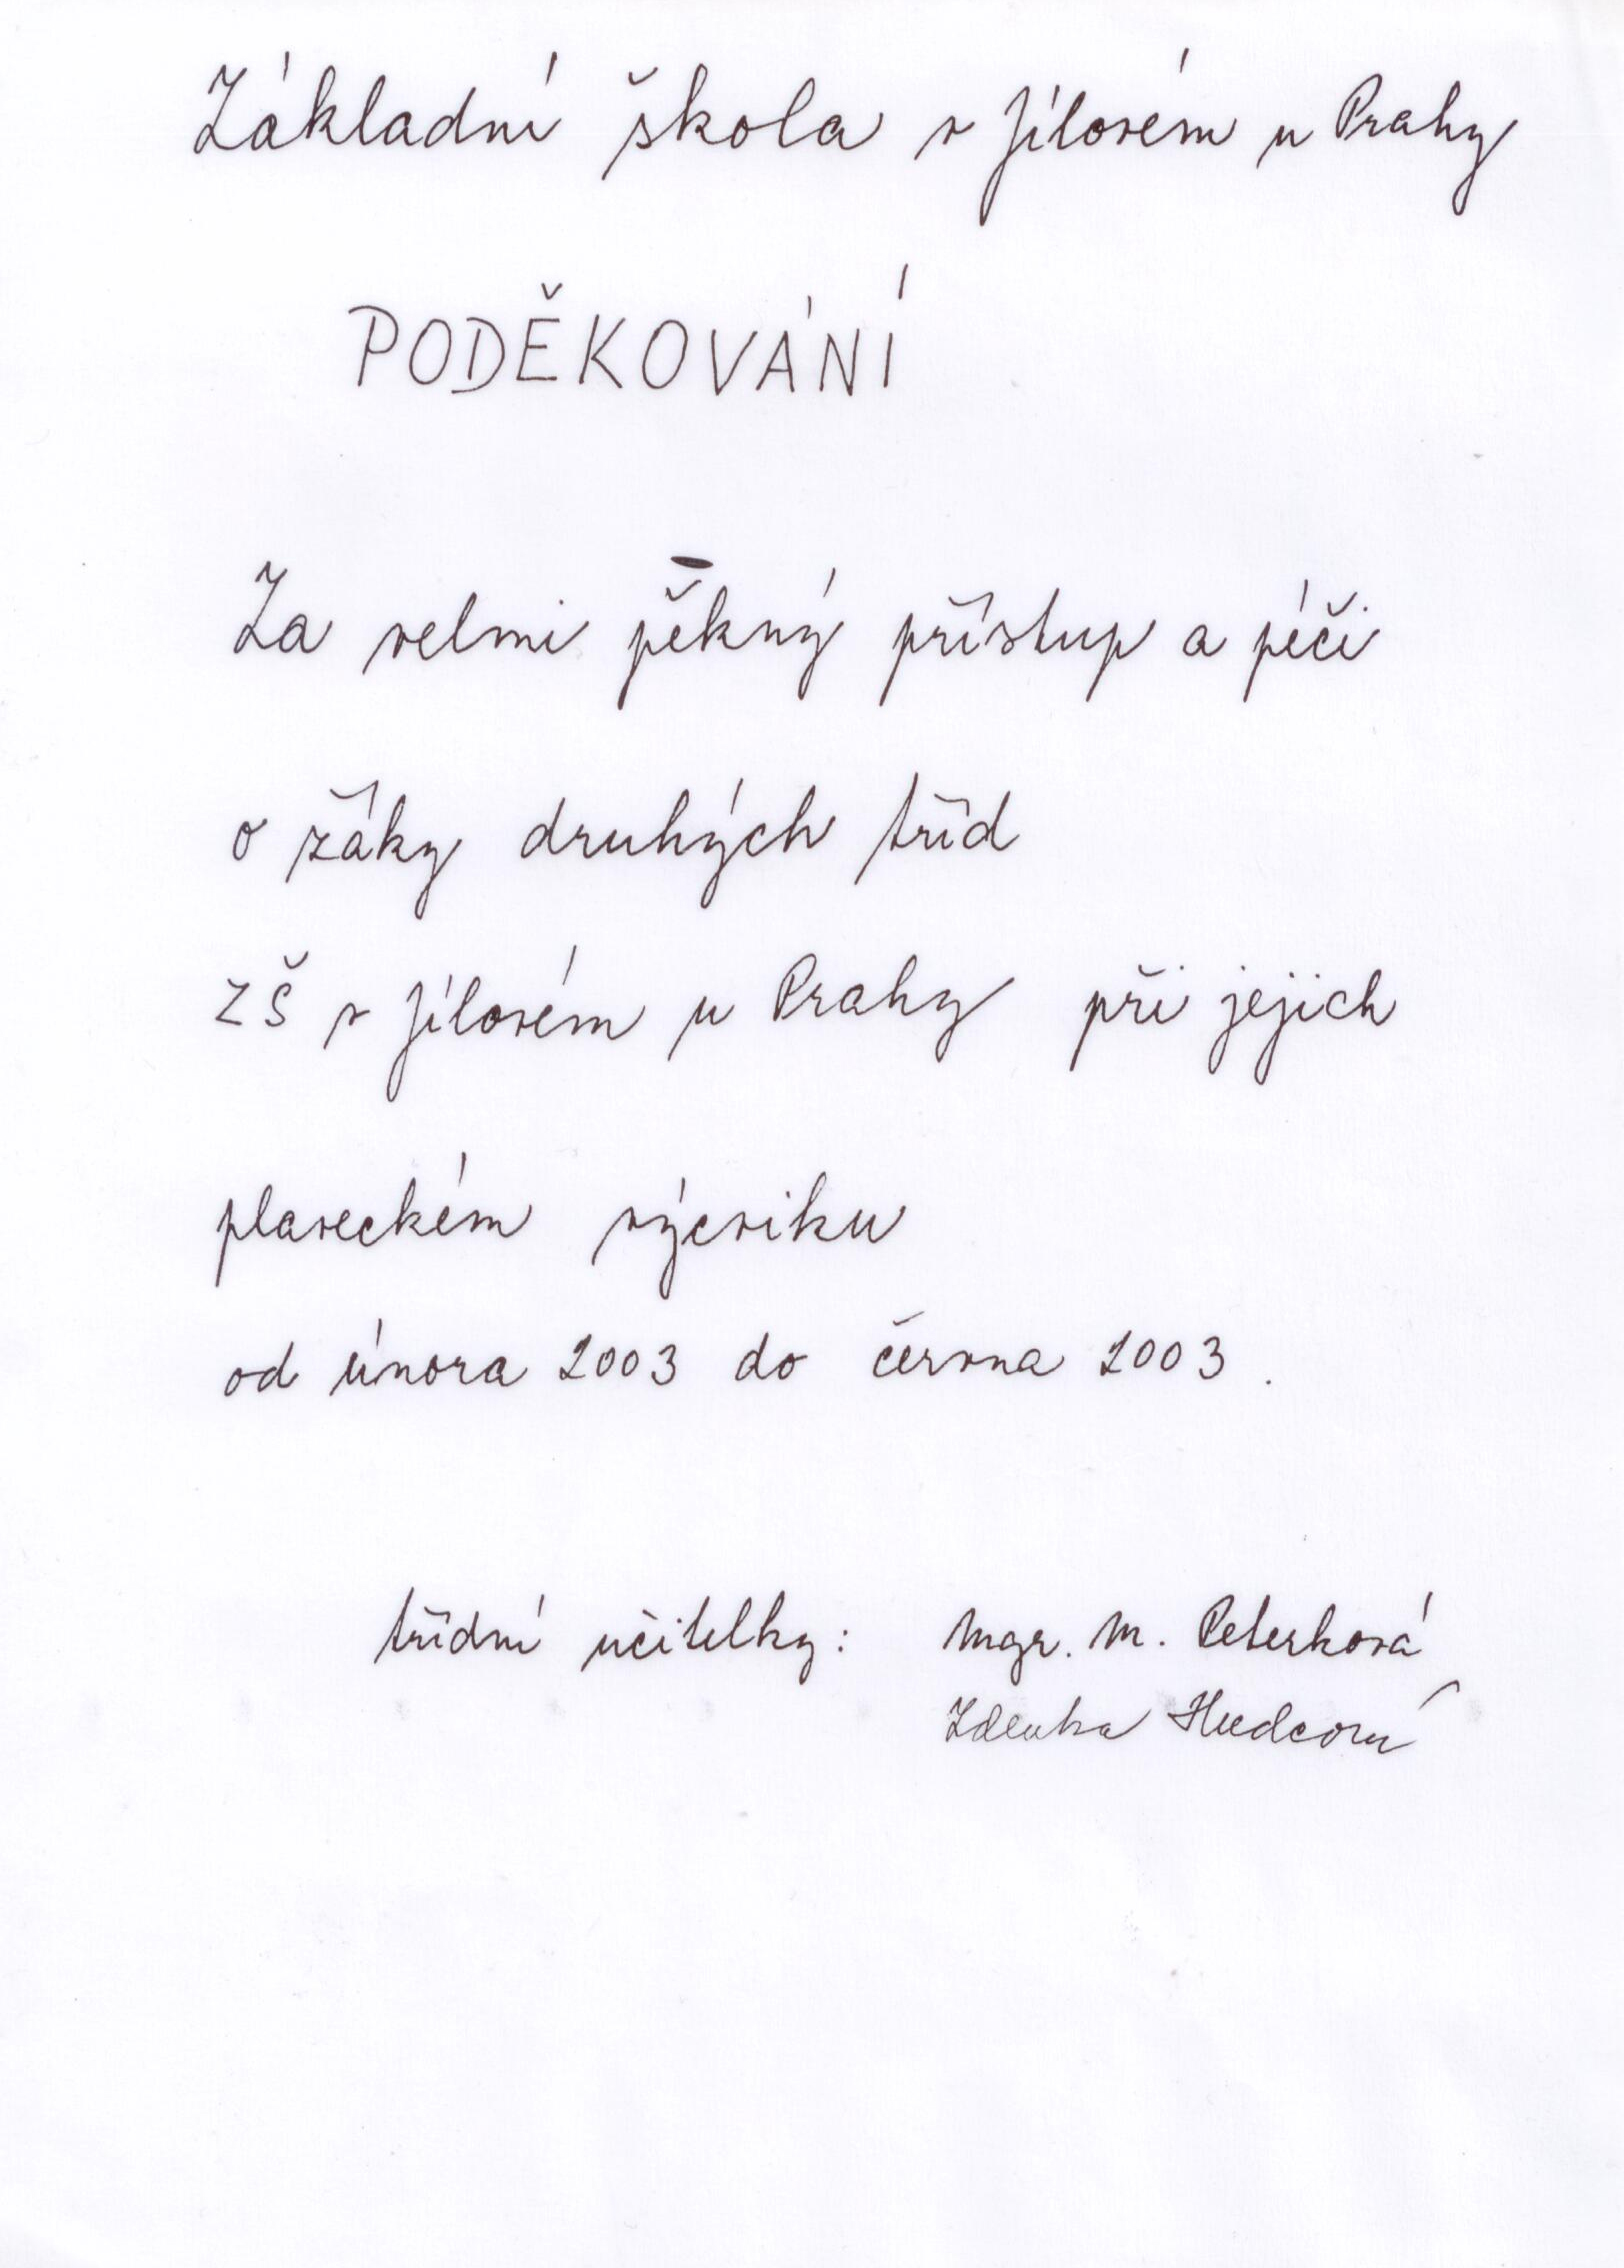 Základní škola v Jílovém u Prahy
PODĚKOVÁNÍ
Za velmi pěkný přístup a péči
o žáky druhých tříd
ZŠ v Jílovém u Prahy při jejich
plaveckém výcviku
od února 2003 do června 2003.
třídní učitelky: Mgr. M. Peterková
Zdeňka Hudcová